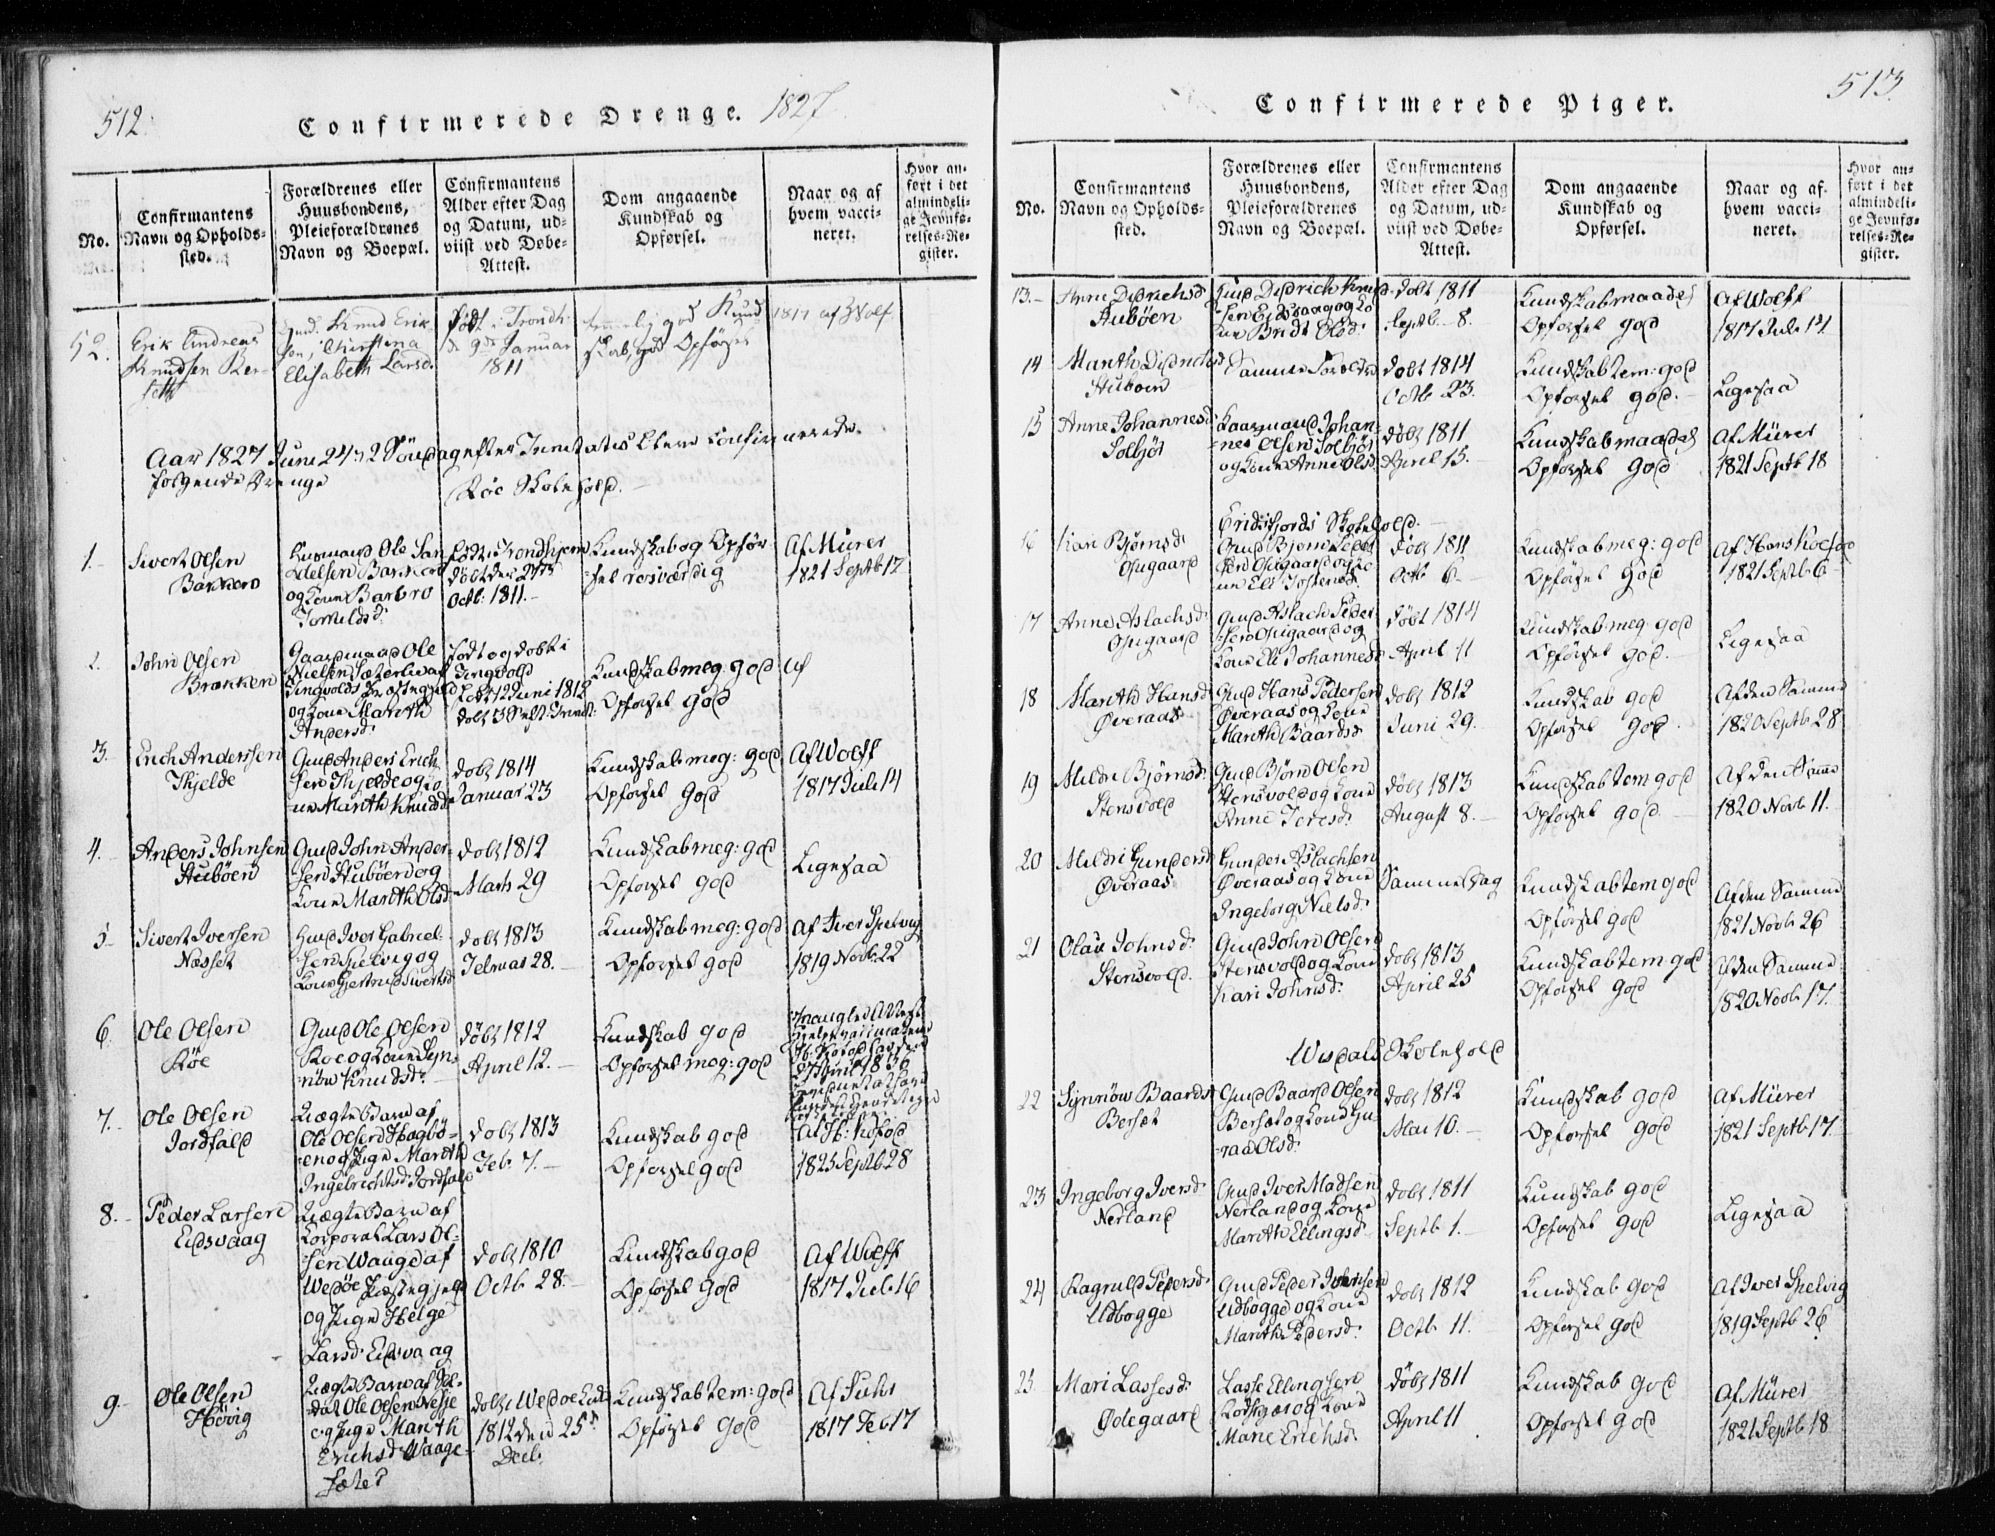 512.
Confirmerede Drenge. 1827
No.
Confirmantens
Navn og Opholds-
sted.
Forældrenes eller
Huusbondens,
Pleieforældrenes
Navn og Boepæl.
Confirmantens
Alder efter Dag
og Datum, ud-
viist ved Døbe-
Attest.
Dom angaaende
Kundskab og
Opførsel.
Naar og af
hvem vacci-
neret.
Hvor an-
ført i det
almindeli-
ge Jevnfø-
relses-Re-
gister.
52.
Erik Andreas
Knudsen
Knud Erik-
sen, Christina
Elisabeth Larsd.
født i Trondh:
d. 9de Januar
1811
temmelig god Kund
skab, god Opførsel
1817 af Wolf
Aar 1827 Juni 24 2 Søndag efter Trinitatis bleve confirmerede
følgende Drenge
Røe Skolehold.
1.
Sivert Olsen
Bakken
Husmand Ole
og Kone Barbro
døbt den 27
Octb: 1811.
Kundskab og Opfør-
sel rosværdig
Af Mürer
1821 Septb 17
2.
John Olsen
Brækken
Gaardmand Ole
Nielsen Sæterlie af
Tingvolds Præstegjeld
og Kone Marith
Andersd:
født og døbt i
Tingvold
født 12 Juni 1812
Kundskab meg: god
Opførsel god
Af
3.
Erich Anderssen
Thjelde
Gmd Anders Erich-
sen Thjelde og Ko
ne Marith Knudsd
døbt 1814
Januar 23
Kundskab meg: god
Opførsel god
Af Wolff
1817 Juli 14
4.
Anders Johnsen
Stubøen
Gmd John Ander-
sen Stubøen og
Kone Marith Olsd
døbt 1812
Marts 29
Kundskab meg: god
Opførsel god
Ligesaa
5
Sivert Iversen
Nasset
Hmd Iver Gabriel-
sen Spilvig og
Kone Gjertrud Sivertsd
døbt 1813
Februar 28.
Kundskab meg: god
Opførsel god
Af Iver Spelvig
1819 Novb: 22
6.
Ole Olsen
Røe
Gmd Ole Olsen
Roe og Kone Syn-
nøw Knudsd:
døbt 1812
April 12.
Kundskab god
Opførsel meg: god
7.
Ole Olsen
Jordfald
Uægte Barn af
Ole Olsen Hagbø-
en og Pige Marith
Ingebrichtsd: Jordfald
døbt 1813
Feb. 7.
Kundskab god
Opførsel god
1825 Septb 28
8.
Peder Larsen
Eidsvaag
Uægte Barn af
Korporal Lars Ol-
sen Waage af
Wedøe Præstegjeld
og Pige Helge
Larsd: Eidsvaag
døbt 1810
Octb 28.
Kundskab god
Opførsel god
Af Wolff
1817 Juli 16
9.
Ole Olsen
Høvig
Uægte Barn af
Ole Olsen Nesje
og Pige Marith
Erichsd: Waage-
sæter
døbt i Wedøe
1812 den 25de
Kundskab tem: god
Opførsel god
Af Suhr
1817 Feb 17
513.
Confirmerede Piger.
No.
Confirmantens
Navn og Opholds-
sted.
Forældrenes eller
Huusbondens,
Pleieforældrenes
Navn og Boepæl.
Confirmantens
Alder efter Dag
og Datum, ud-
viist ved Døbe-
Attest.
Dom angaaende
Kundskab og
Opførsel.
Naar og af
hvem vacci-
neret.
Hvor an-
ført i det
almindeli-
ge Jevnfø-
relses-Re-
gister.
13.
Anne Didrichsd
Stubøen
Gmd Didrich Knud-
sen Eidsvaag og Ko
ne Bridt Olsd:
døbt 1811
Septb. 8.
Kundskab maadel
Opførsel god
Af Wolff
1817 Juli 14
14
Marith Didrichsd
Stuboen
Samme Forældre
døbt 1814
Octb 23.
Kundskab tem: god
Opførsel god.
Ligesaa
15
Anne Johannesd:
Solbjør
Gaarmand Johan-
nes Olsen Solbjør
og Kone Anne Olsd
døbt 1811
April 15.
Kundskab maadel
Opførsel god
Af Mürer
1821 Septb 18
Eridsfjords Skolehold.
16
Kari Bjørnsd:
Opigaard
Gmd Bjørn
sen Opigaard og Ko
ne Eli Tostensd:
døbt 1811
Octb 6.
Kundskab meg: god
Opførsel god
Af Hans
1821 Septb 6
17
Anne Aslachsd:
Opigaard
Gmd Aslach Peder-
sen Opigaard og
Kone Eli Johannesd
døbt 1814
April 11
Kundskab meg: god
Opførsel god.
Ligesaa
18
Marith Hansd:
Øveraas
Gmd Hans Pedersen
Øveraas og Kone
Marith Baardsd:
døbt 1812
Juni 29.
Kundskab god
Opførsel god.
Af den Samme
1820 Septb 28
19
Mildri Bjørnsd:
Stensvold
Gmd Bjørn Olsen
Stensvold og Kone
Anne Iversd:
døbt 1813
August 8.
Kundskab tem god
Opførsel god.
Af den Samme
1820 Novb 11.
20
Mildri Gundersd
Øveraas
Gunder Aslachsen
Øveraas og Kone
Ingeborg Nielsd:
Samme Dag
Kundskab tem god
Opførsel god
Af den Samme
1821 Novb 26
21
Olau Johnsd:
Stensvold.
Gmd John Olsen
Stensvold og Kone
Kari Johnsd:
døbt 1813
April 25
Kundskab tem. god
Opførsel god
Af den Samme
1820 Novb 17.
Wisdals Skolehold
22
Synnøw Baardsd
Bersæt
Gmd Baard Olsen
Bersæt og Kone Gu-
raa Olsd:
døbt 1812
Mai 10.
Kundskab god
Opførsel god
Af Mürer
1821 Septb 17
23
Ingeborg Iversd:
Nerland
Gmd Iver Madsen
Nerland og Kone
Marith Ellingsd:
døbt 1811
Septb 1.
Kundskab god
Opførsel god
Ligesaa
24
Ragnild Pedersd:
Udbogge
Gmd Peder Iversen
Udbogge og Kone
Marith Pedersd:
døbt 1812
Octb 11.
Kundskab god
Opførsel god
Af Iver Spelvig
1819 Septb 26
25.
Mari Lassesd:
Ødegaard
Lasse Ellingsen
og Kone
Marie Erichsd:
døbt 1811
April 11
Kundskab god
Opførsel god
Af Mürer
1821 Septb 18